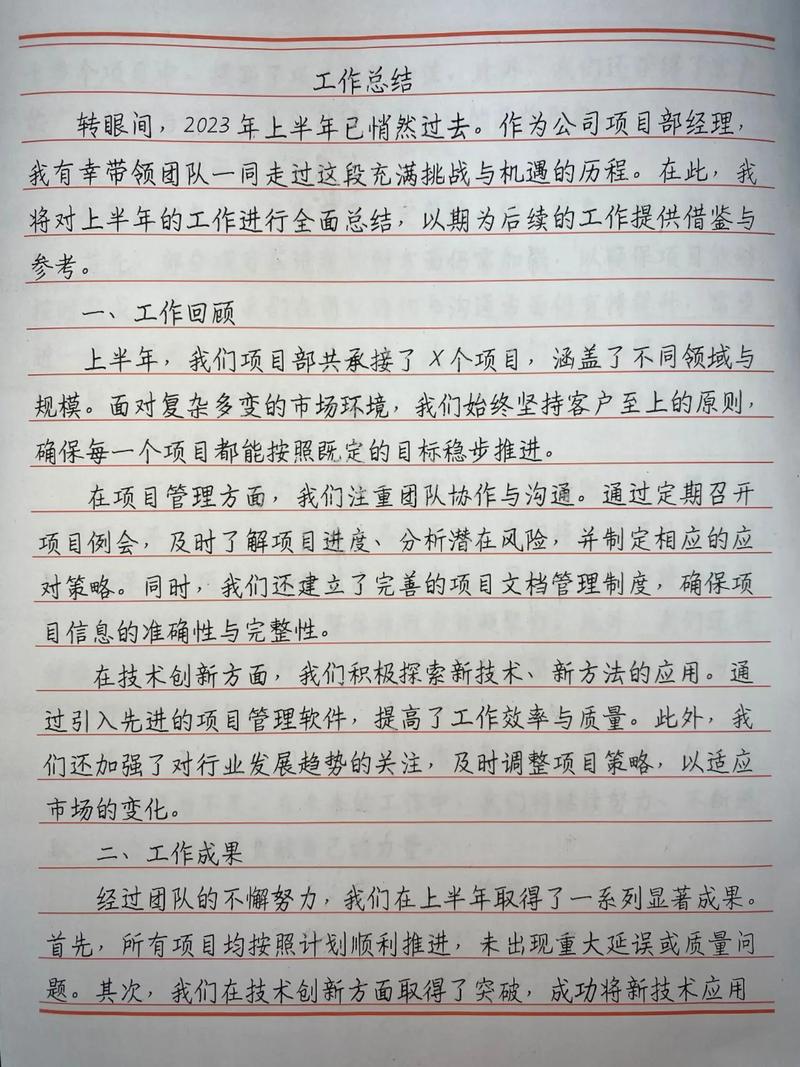 工作总结
转眼间，2023年上半年已悄然过去。作为公司项目部经理，
我有幸带领团队一同走过这段充满挑战与机遇的历程。在此，我
将对上半年的工作进行全面总结，以期为后续的工作提供借鉴与
参考。
一、工作回顾
上半年，我们项目部共承接了X个项目，涵盖了不同领域与
规模。面对复杂多变的市场环境，我们始终坚持客户至上的原则，
确保每一个项目都能按照既定的目标稳步推进。
在项目管理方面，我们注重团队协作与沟通。通过定期召开
项目例会，及时了解项目进度、分析潜在风险，并制定相应的应
对策略。同时，我们还建立了完善的项目文档管理制度，确保项
目信息的准确性与完整性。
在技术创新方面，我们积极探索新技术、新方法的应用。通
过引入先进的项目管理软件，提高了工作效率与质量。此外，我
们还加强了对行业发展趋势的关注，及时调整项目策略，以适应
市场的变化。
二、工作成果
经过团队的不懈努力，我们在上半年取得了一系列显著成果。
首先，所有项目均按照计划顺利推进，未出现重大延误或质量问
题。其次，我们在技术创新方面取得了突破，成功将新技术应用